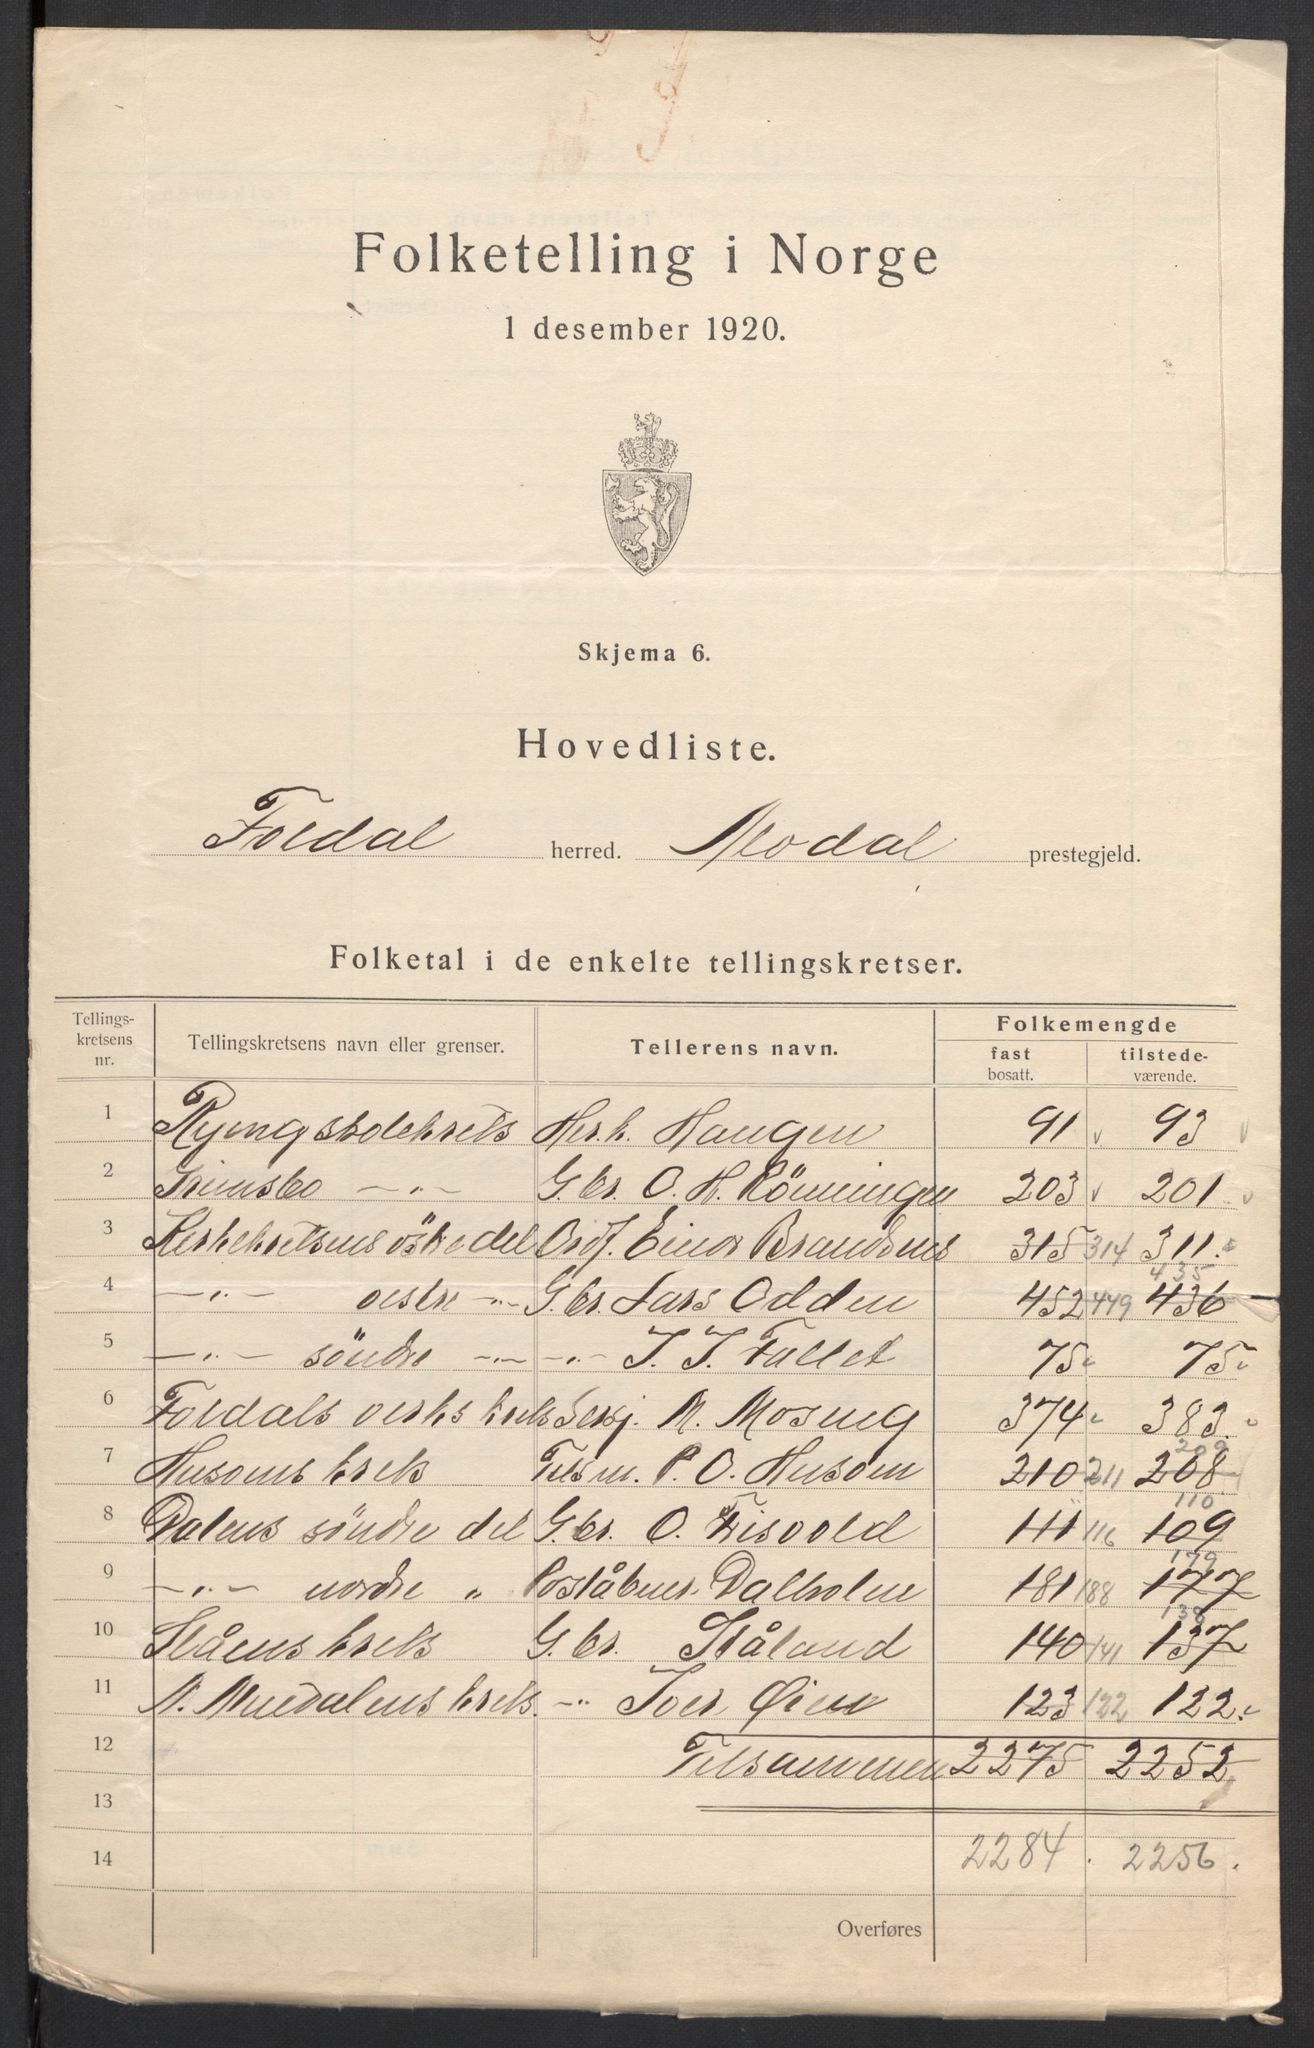 Folketelling i Norge
1 desember 1920.
Skjema 6.
Hovedliste.
Foldal herred. Alvdal prestegjeld.
Folketal i de enkelte tellingskretser.
Tellings-kretsens nr. Tellingskretsens navn eller grenser. Tellerens navn. Folkemengde
fast bosatt. tilstede-værende.
1 Ryengstolekrets Her.k. Haugen 91 v 93 v
2 Grimsbo -"- G.br. O. H. Rönningen 203 v 201 v
3 Kirkekretsens östre del Ordf. Einar Brandsnes 315 314 311.
4 -"- vestre -"- G.br. Lars Odden 452 449 436 435
5 -"- söndre -"- -"- J. J. Fallet 75 75
6 Foldals verks krets Sersj. M. Mosing 374 383.
7 Husoms krets Telsm. P. O. Husom 210 211 208 209
8 Dalens söndre del G.br. O. Frisvold 111 116 109 110
9 -"- nordre " Poståbner Dalholm 181 188 177 179
10 Slåens krets G.br. Slåland 140 141 137 138
11 krets. -"- Iver Øien 123 122 122.
12 Tilsammen 2275 2252
13
14 2284. 2256.
Overføres